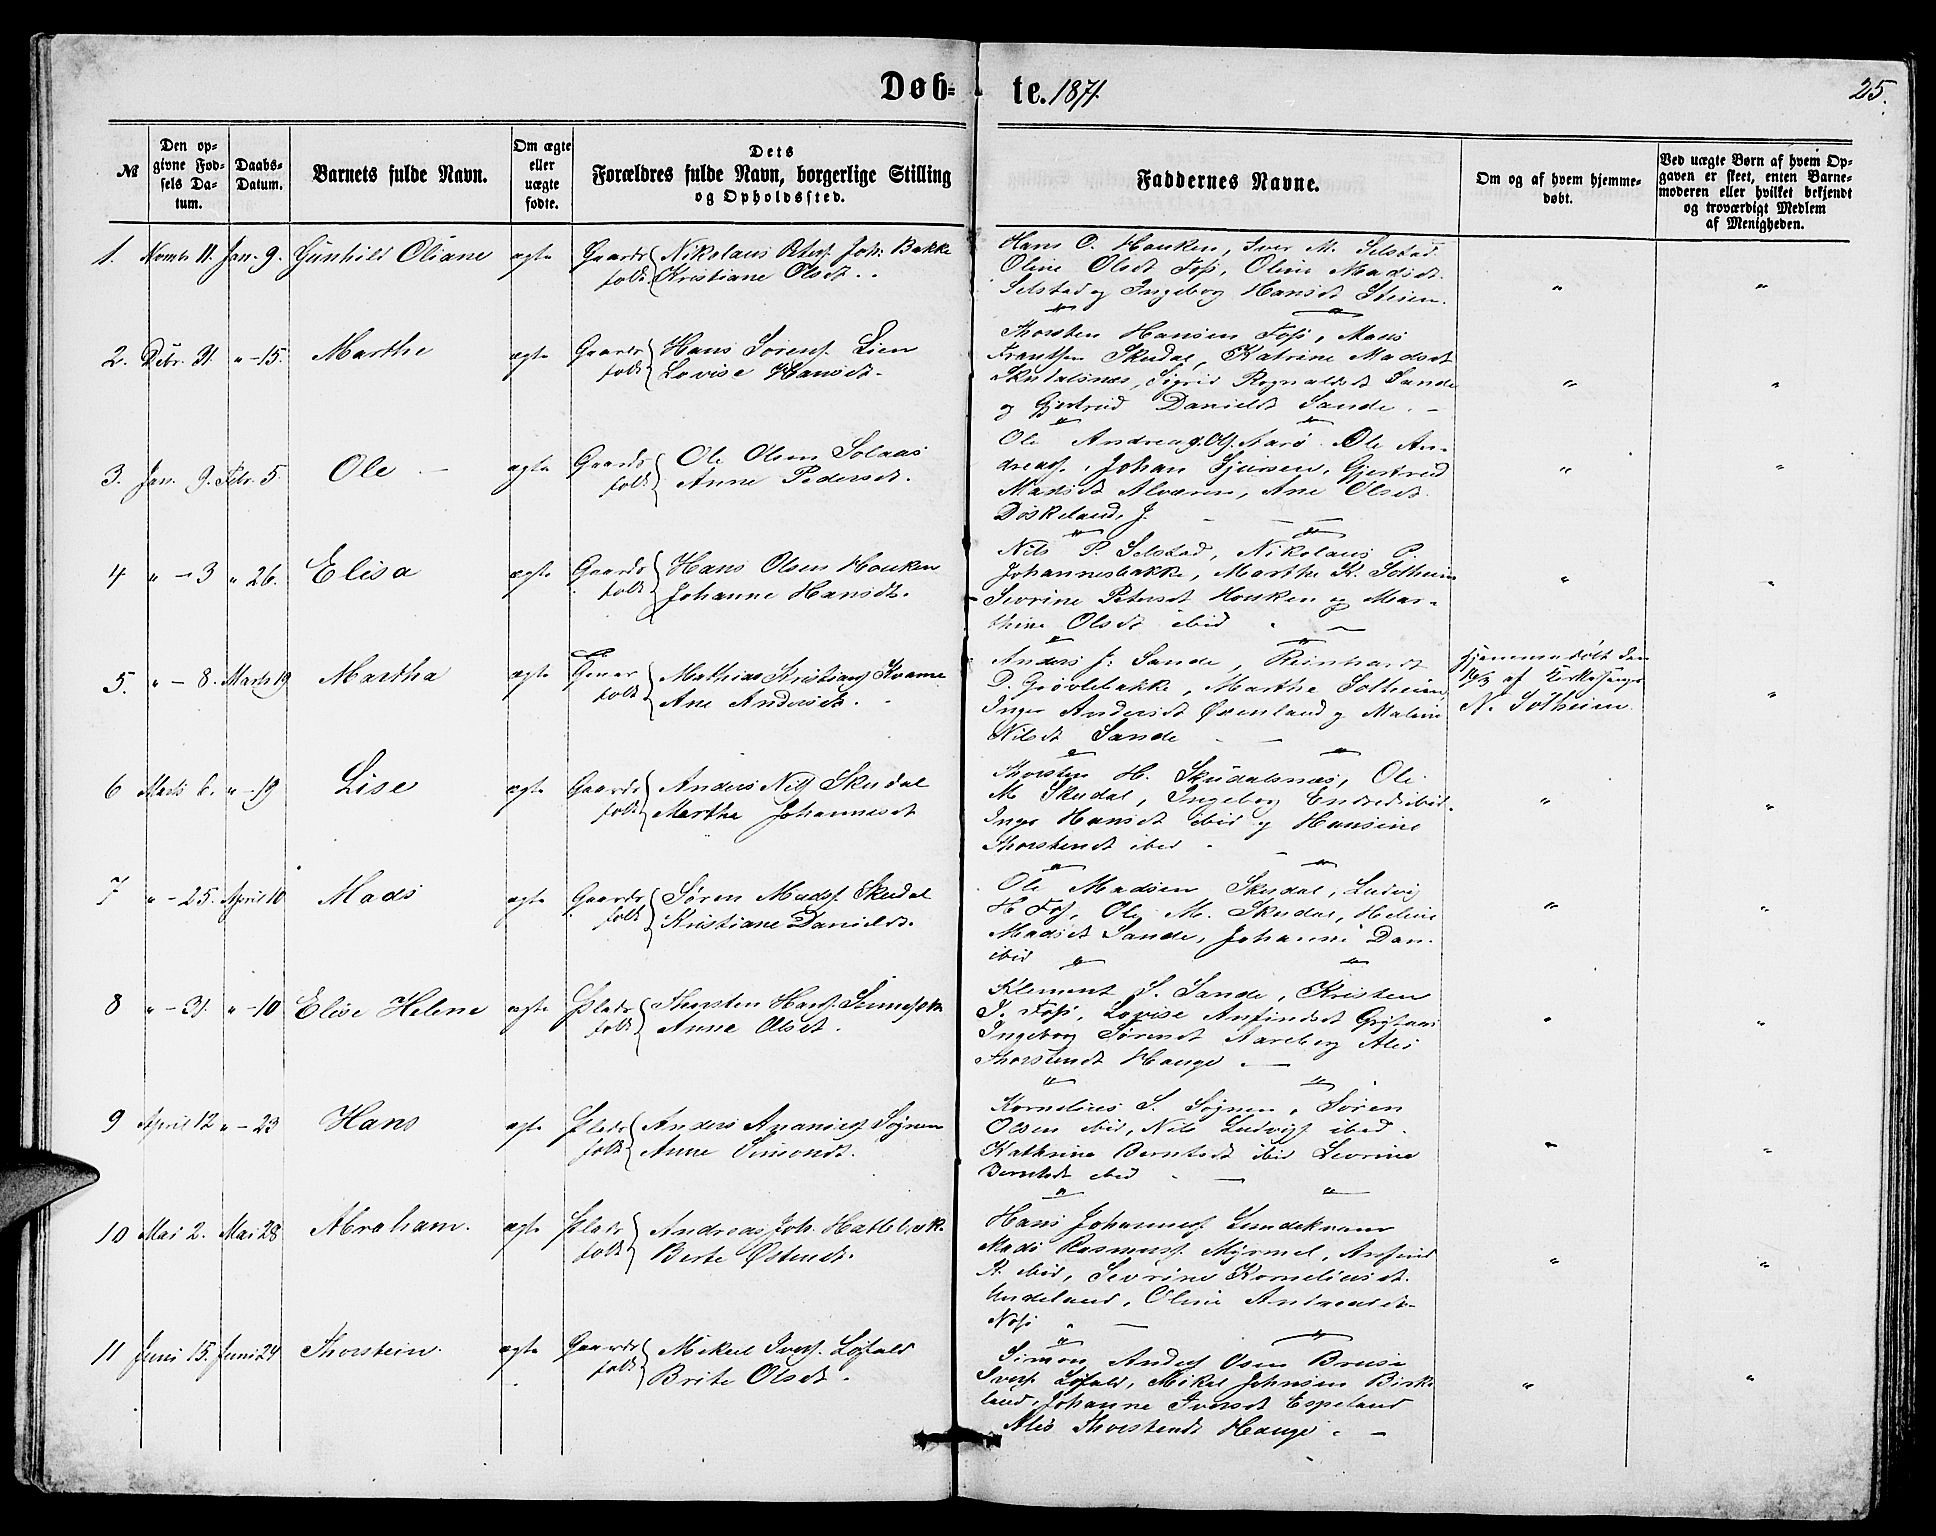 Døb-te. 1871.
25.
№
Den opgivne Fødsels Datum.
Daabs-Datum.
Barnets fulde Navn.
Om ægte eller uægte fødte.
Dets Forældres fulde Navn, borgerlige Stilling og Opholdssted.
Faddernes Navne.
Om og af hvem hjemmedøbt.
Ved uægte Børn af hvem Opgaven er skeet, enten Barnemoderen eller hvilket bekjendt og troværdigt Medlem af Menigheden.
1. Novmb 11. Jan. 9. Gunhild Oliane ægte Gaards folk Nikolaus Peters. Joh. Bakke
Kristiane Olsdt.
Hans O. Houken, Iver M. Selstad
Oline Olsdt Foss, Oline Madsdt
Selstad og Ingeborg Hansdt Steien
2. Debr. 31. " - 15. Marthe ægte Gaards folk Hans Sørens. Lien
Lovise Hansdt.
Thorsten Hansen Foss, Mads
Frantsen Skudal, Katrine Madsdt
Skudalsnes, Sigrid Rognaldsdt Sande
og Gjertrud Danielsdt Sande. -
3. Jan. 9. Febr. 5. Ole ægte Gaards folk Ole Olsen Solaas
Anne Pedersdt.
Ole Andreas Ols. Aarø. Ole An-
dreas. Johan Sjursen, Gjertrud
Madsdt Alværen, Ane Olsdt
Døskeland, J.
4 " - 3 " 26. Elisa ægte Gaards folk Hans Olsen Houken
Johanne Hansdt.
Nils P. Selstad, Nikolaus P.
Johannesbakke, Marthe K. Solheim
Sevrine Petersdt Houken og Mar-
thine Olsdt ibid
5. " - 8. Marts 19 Martha ægte Gaar folk Mathias Kristians. Kvame
Ane Andersdt.
Anders J. Sande, Reinhardt
D. Grøvlebakke, Marthe Solheim,
Inger Andersdt Øvenland og Malene
Nilsdt Sande
Hjemmedøbt den
af Kirkesanger
N. Solheim.
6 Marts 6. " - 19 Lise ægte Gaards folk Anders Nils. Skudal
Marthe Johannesdt
Thorsten H. Skudalsnes, Ole
M. Skudal, Ingeborg Endredt ibid.
Inger Hansdt ibid og Hansine
Thorstendt ibid.
7 " - 25. April 10 Mads ægte Gaards folk Søren Mads. Skudal
Kristiane Danielsdt.
Ole Madsen Skudal, Ludvig
H. Foss, Ole M. Skudal, Heline
Madsdt Sande, Johanne Dan.
ibid
8 " - 31. " - 10 Elise Helene ægte Plads folk Thorsten Hans.
Anne Olsdt.
Klement S. Sande, Kristen
J. Foss, Lovise Anfindsdt
Ingeborg Sørendt Aareberg Alis
Thorstendt Hauge. -
9 April 12 " - 23 Hans ægte Plads folk Anders Ananias. Søgnen
Anne Simondt.
Kornelius S. Søgnen, Søren
Olsen ibid, Nils Ludvigs. ibid.
Kathrine Berntsdt ibid Sevrine
Berntsdt ibid
10 Mai 2. Mai 28 Abraham. ægte Plads folk Andreas Joh.
Berte Østensdt.
Hans Johannes. Lundekvam
Mads Rasmus. Myrmel, Anfind
R. ibid, Sevrine Korneliusdt.
Undeland, Oline Andreasdt
11 Juni 15. Juni 24 Thorstein. ægte Gaards folk Mikal Ivers. Løfald
Brite Olsdt.
Simon Anders. Osen
Ivers. Løfald, Mikal Johnsen Birke
land, Johanne Iversdt Espeland
Alis Thorstendt Hauge. -